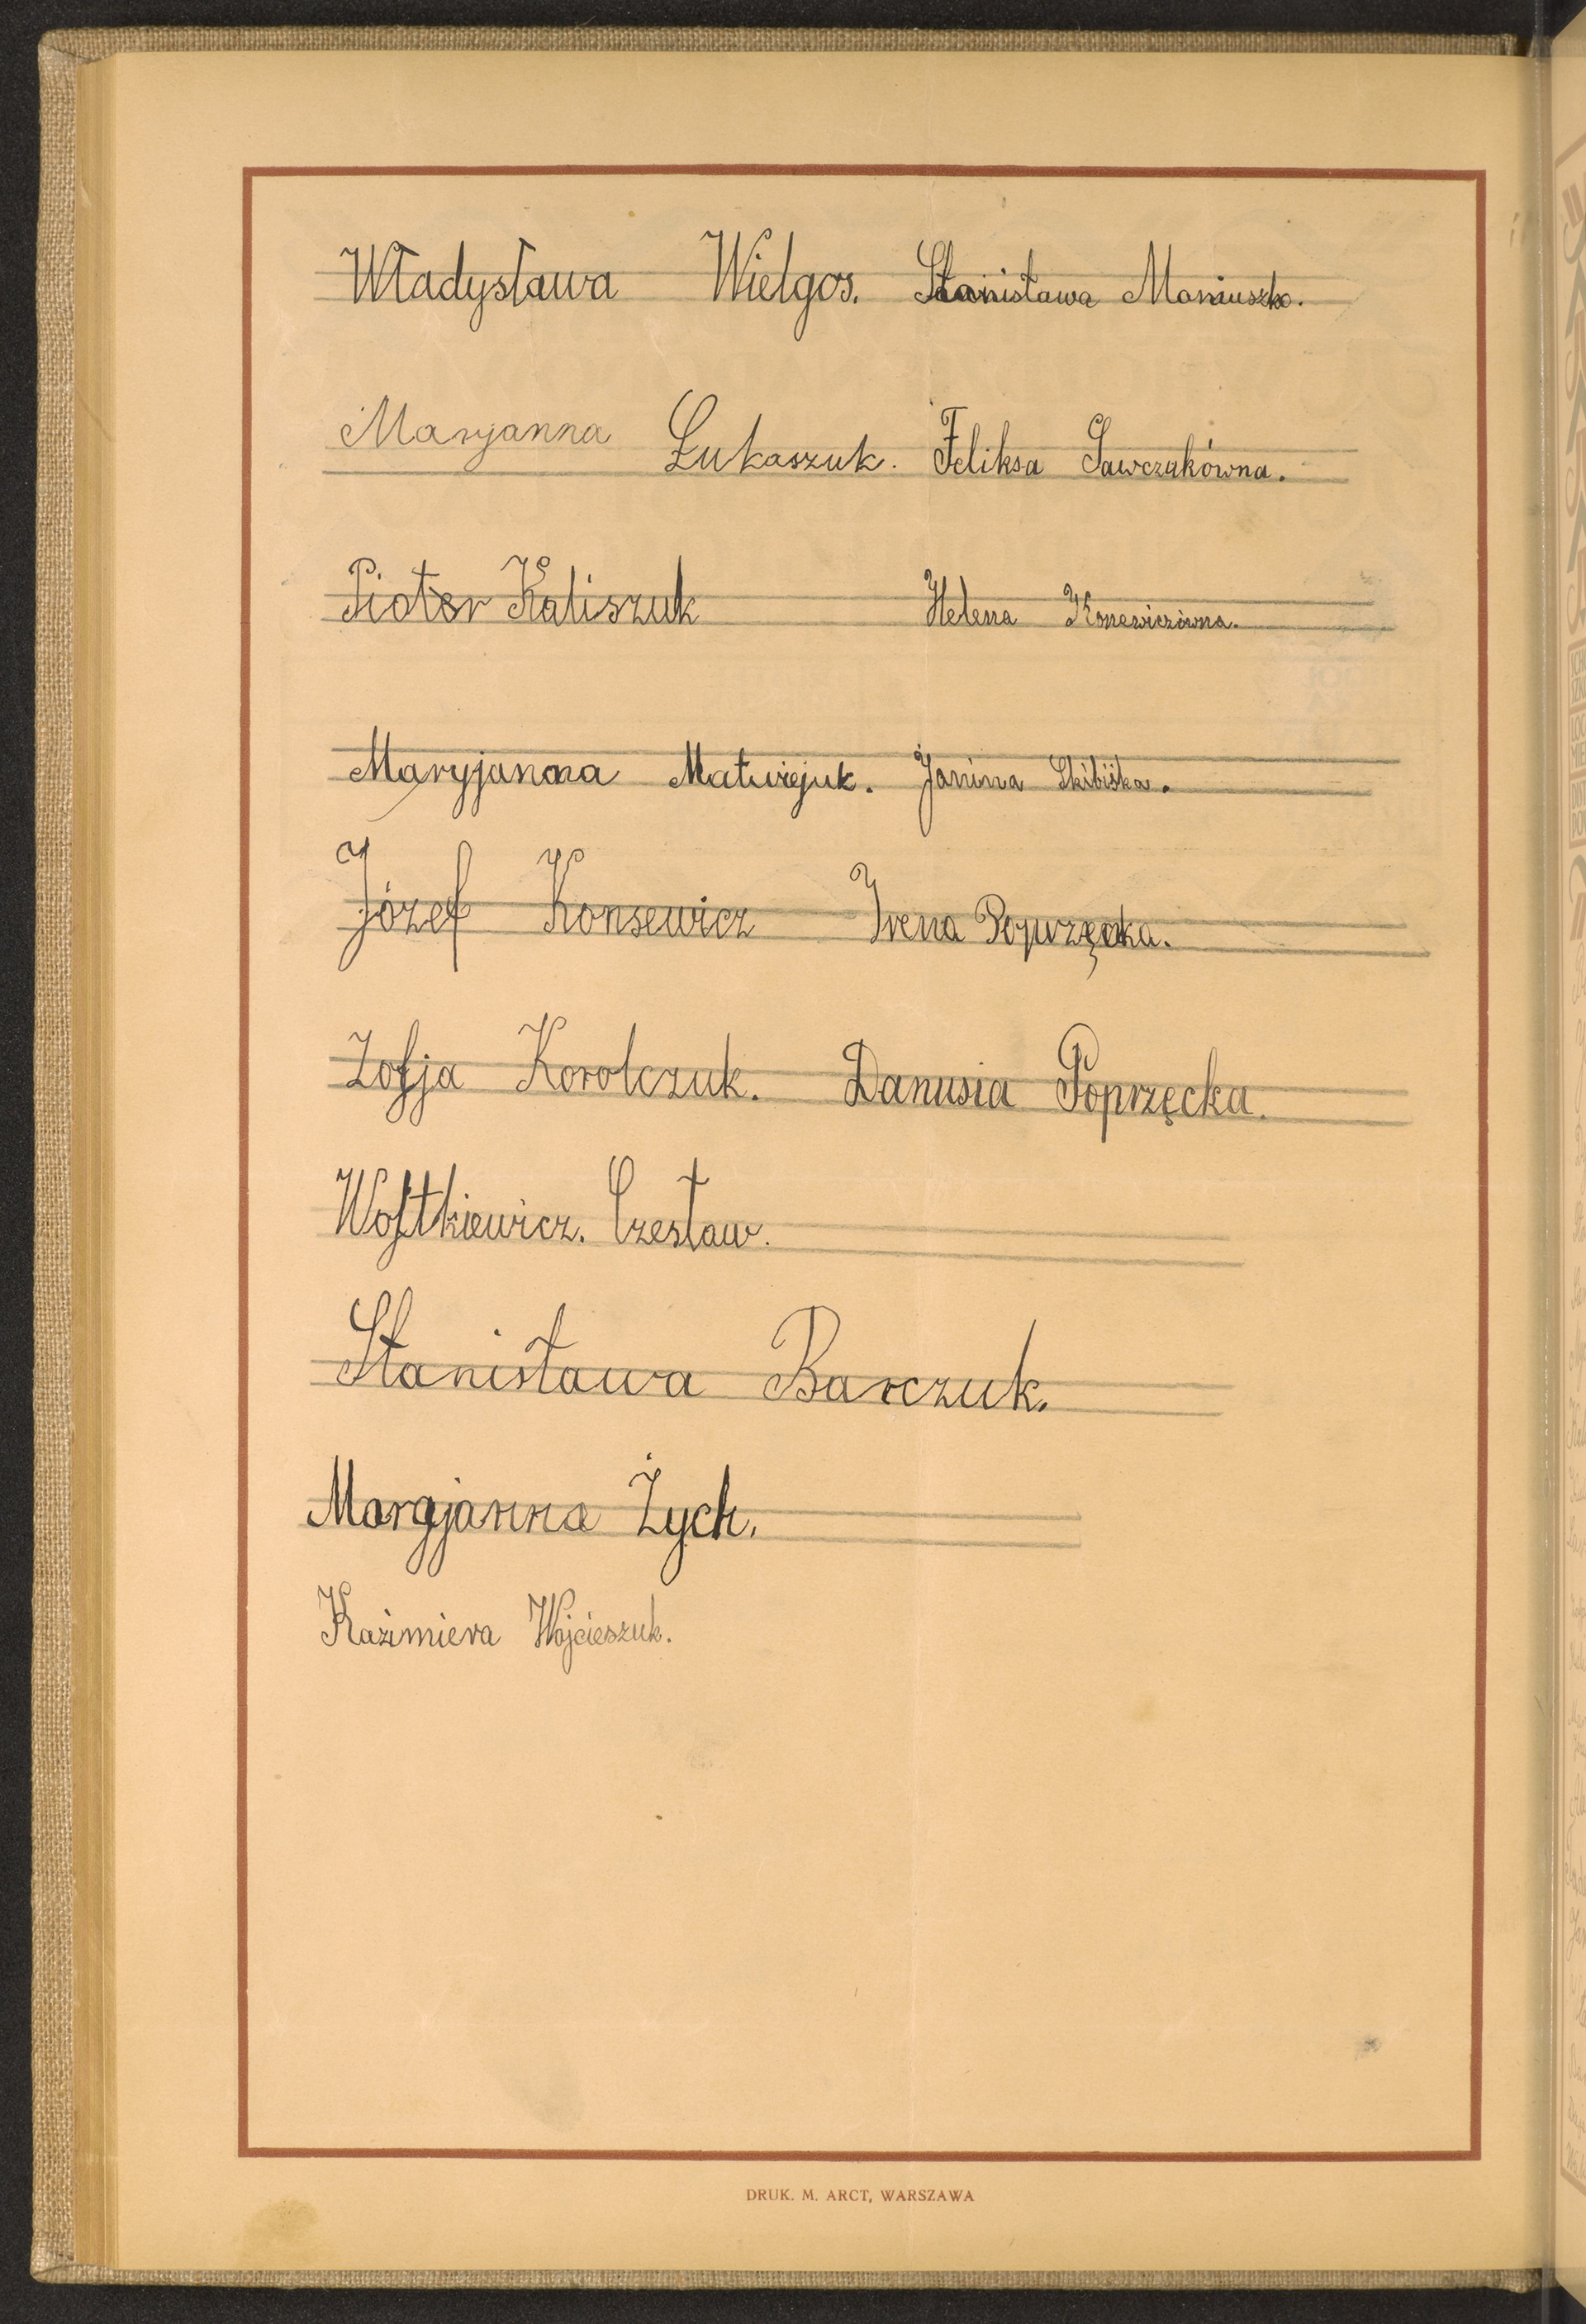 Władysława Wielgos. Stanisława Moniuszko.
Maryanna Łukaszuk. Feliksa Sawczukówna.
Piotr Kaliszuk Helena Konewiczówna.
Maryjanna Matwiejuk. Janina
Józef Konsewicz Irena Poprzęcka.
Zofja Korolczuk. Danusia Poprzęcka.
Wojtkiewicz. Czesław.
Stanisława Barczuk.
Maryjanna Żych.
Kazimiera Wojcieszuk.
DRUK. M. ARCT, WARSZAWA